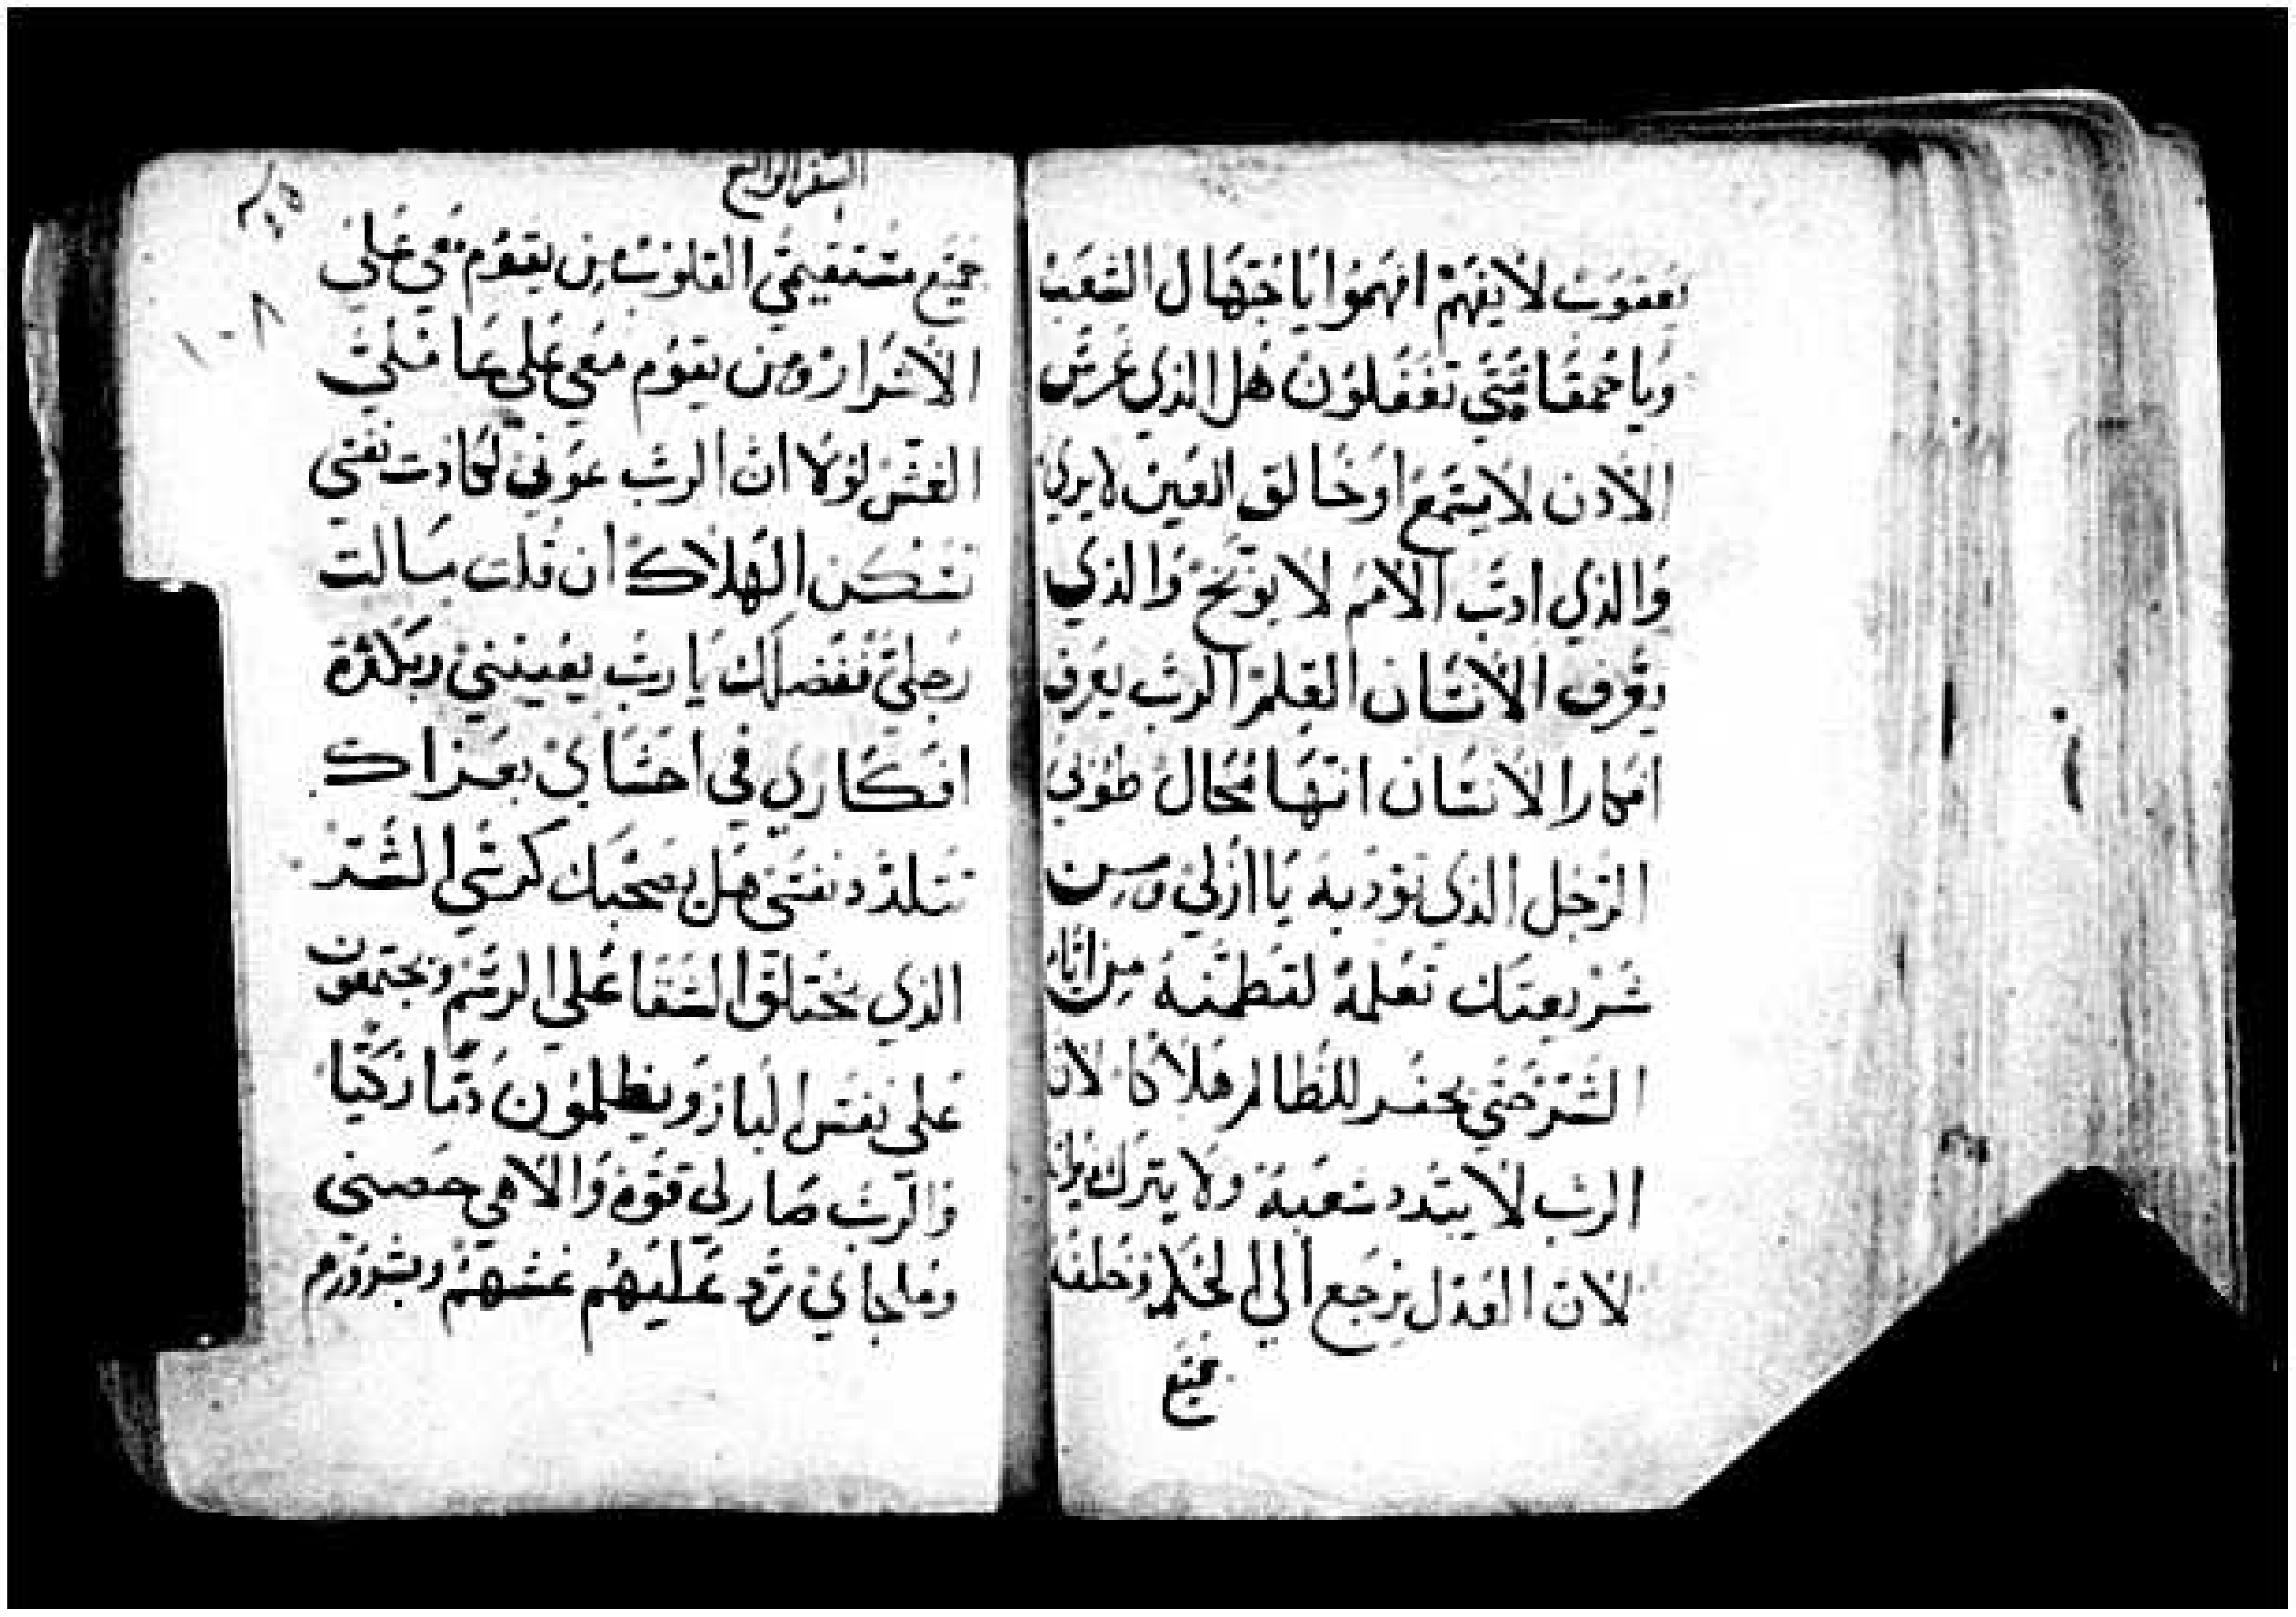 يعقوب لا يفهم افهموا يا جهال الشعب
ويا حمقا متي تعقلون هل الذي غرس
الادن لا يسمع او خالق العين لا يري
والذي ادب الامم لا يوبخ والذي
يعرف الانسان العلم الرب يعرف
افكار الانسان انها محال طوبي
الرجل الذي تودبه يا ازلي ومن
شريعتك تعلمه لتطمنه من ايام
الشر حتي يحفر للظالم هلاكا لان
الرب لا يبدد شعبه ولا يترك
لان العدل يرجع الي الحكم وخلفه
جميع
السفر الرابع
جميع مستقيمي القلوب من يقوم معي علي
الاشرار ومن يقوم معي علي عاملي
الغش لولا ان الرب عوني لكادت نفسي
تسكن الهلاك ان قلت سالت
رجلي ففضلك يا رب يعينني وبكثرة
افكاري في احشاي بعزاك
تتلدد نفسي هل يصحبك كرسي الشر
الذي يختلق الشقا علي الرسم ويجتمعون
علي نفس البار ويظلمون دما زكيا
والرب صار لي قوة والاهي حصني
وملجاي رد عليهم غشهم وبشرورهم
١٠٨